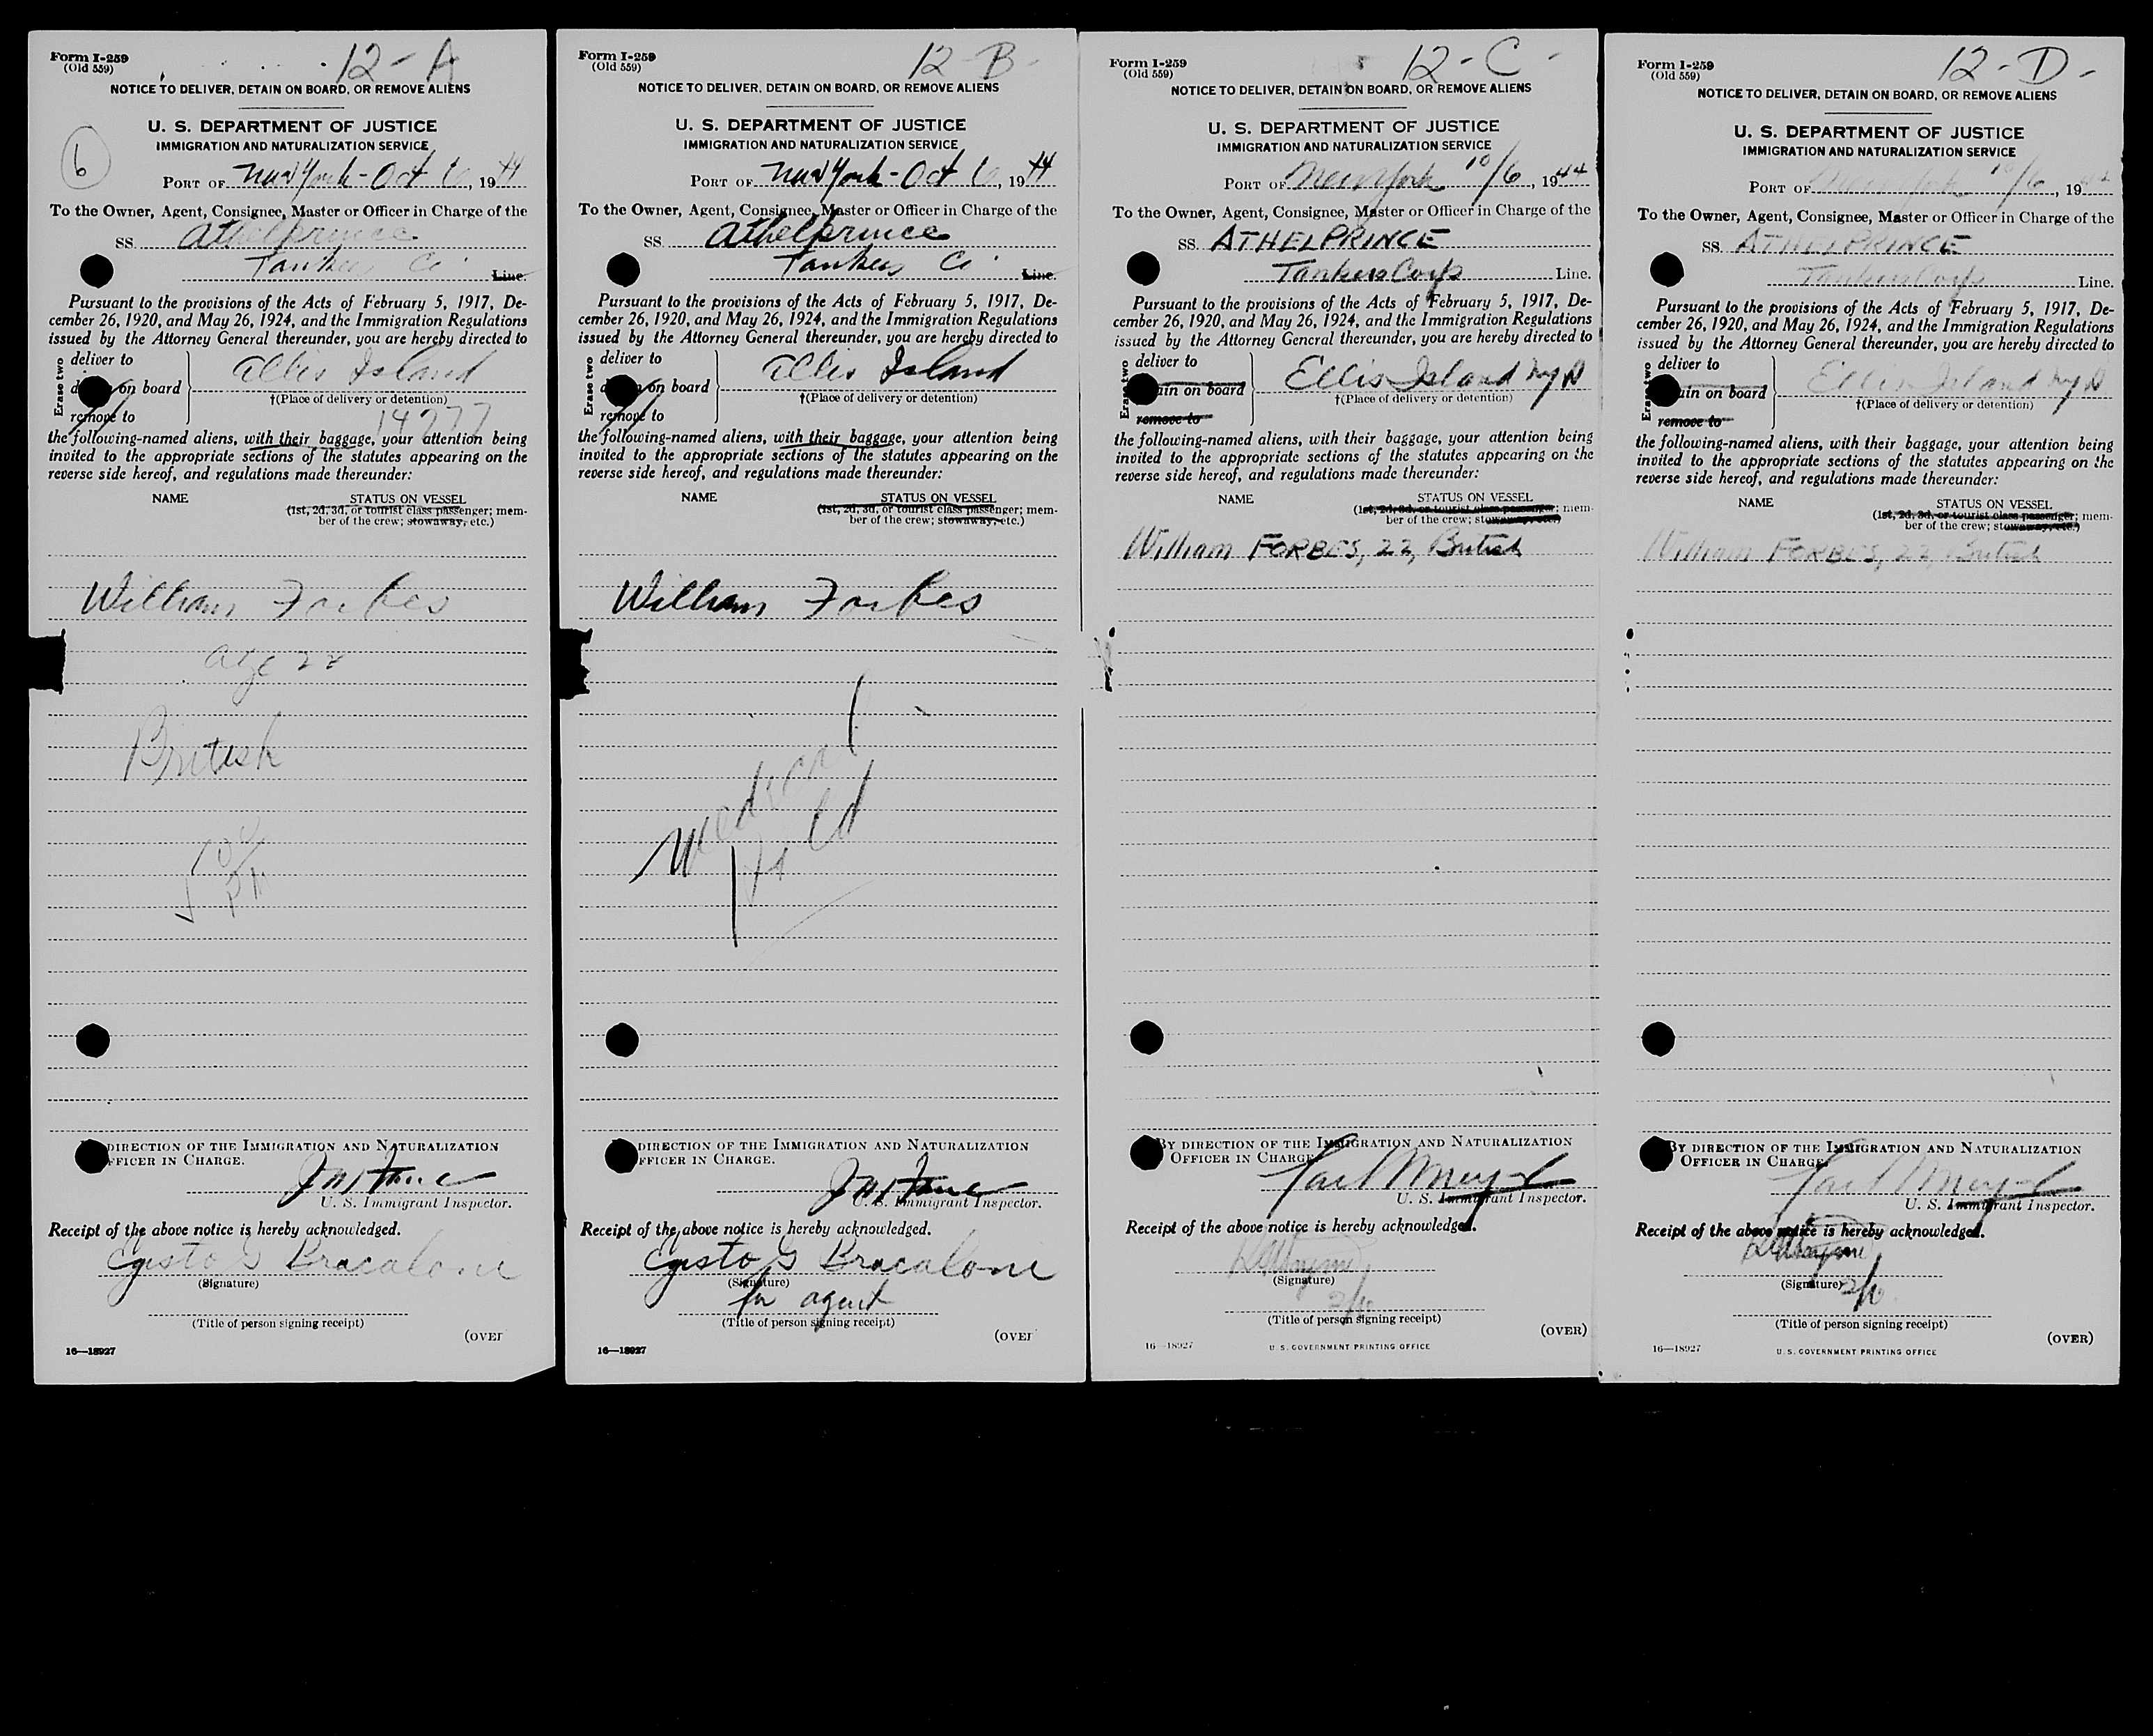 Form I-259
(Old 559)
12-A
NOTICE TO DELIVER, DETAIN ON BOARD, OR REMOVE ALIENS
U. S. DEPARTMENT OF JUSTICE
IMMIGRATION AND NATURALIZATION SERVICE
6
PORT OF New York - Oct 6, 1944
To the Owner, Agent, Consignee, Master or Officer in Charge of the
SS. Athelprince
Tankers Co. Line.
Pursuant to the provisions of the Acts of February 5, 1917, De-
cember 26, 1920, and May 26, 1924, and the Immigration Regulations
issued by the Attorney General thereunder, you are hereby directed to
Erase two
deliver to
on board
remove to
Ellis Island
†(Place of delivery or detention)
14277
the following-named aliens, with their baggage, your attention being
invited to the appropriate sections of the statutes appearing on the
reverse side hereof, and regulations made thereunder:
NAME
STATUS ON VESSEL
(1st, 2d, 3d, or tourist class passenger; mem-
ber of the crew; stowaway, etc.)
William Forbes
age 22
British
PM
DIRECTION OF THE IMMIGRATION AND NATURALIZATION
FFICER IN CHARGE.
U. S. Immigrant Inspector.
Receipt of the above notice is hereby acknowledged.
Egisto G Bracaloni
(Signature)
(Title of person signing receipt)
(OVER
16—18927
Form I-259
(Old 559)
12-B-
NOTICE TO DELIVER, DETAIN ON BOARD, OR REMOVE ALIENS
U. S. DEPARTMENT OF JUSTICE
IMMIGRATION AND NATURALIZATION SERVICE
PORT OF New York - Oct 6, 1944
To the Owner, Agent, Consignee, Master or Officer in Charge of the
SS. Athelprince
Tankers Co. Line.
Pursuant to the provisions of the Acts of February 5, 1917, De-
cember 26, 1920, and May 26, 1924, and the Immigration Regulations
issued by the Attorney General thereunder, you are hereby directed to
Erase two
deliver to
on board
remove to
Ellis Island
†(Place of delivery or detention)
the following-named aliens, with their baggage, your attention being
invited to the appropriate sections of the statutes appearing on the
reverse side hereof, and regulations made thereunder:
NAME
STATUS ON VESSEL
(1st, 2d, 3d, or tourist class passenger; mem-
ber of the crew; stowaway, etc.)
William Forbes
Medical
Held
DIRECTION OF THE IMMIGRATION AND NATURALIZATION
FFICER IN CHARGE.
U. S. Immigrant Inspector.
Receipt of the above notice is hereby acknowledged.
Egisto G Bracaloni
(Signature)
for agent
(Title of person signing receipt)
(OVER
16—18927
Form I-259
(Old 559)
12-C-
NOTICE TO DELIVER, DETAIN ON BOARD, OR REMOVE ALIENS
U. S. DEPARTMENT OF JUSTICE
IMMIGRATION AND NATURALIZATION SERVICE
PORT OF New York 10/6, 1944
To the Owner, Agent, Consignee, Master or Officer in Charge of the
SS. ATHELPRINCE
Tankers Corp Line.
Pursuant to the provisions of the Acts of February 5, 1917, De-
cember 26, 1920, and May 26, 1924, and the Immigration Regulations
issued by the Attorney General thereunder, you are hereby directed to
Erase two
deliver to
ain on board
remove to
Ellis Island NY
†(Place of delivery or detention)
the following-named aliens, with their baggage, your attention being
invited to the appropriate sections of the statutes appearing on the
reverse side hereof, and regulations made thereunder:
NAME
STATUS ON VESSEL
(1st, 2d, 3d, or tourist class passenger; mem-
ber of the crew; stowaway, etc.)
William FORBES, 22, British
BY DIRECTION OF THE IMMIGRATION AND NATURALIZATION
OFFICER IN CHARGE.
U. S. Immigrant Inspector.
Receipt of the above notice is hereby acknowledged.
(Signature)
(Title of person signing receipt)
(OVER)
16—18927
U. S. GOVERNMENT PRINTING OFFICE
Form I-259
(Old 559)
12-D-
NOTICE TO DELIVER, DETAIN ON BOARD, OR REMOVE ALIENS
U. S. DEPARTMENT OF JUSTICE
IMMIGRATION AND NATURALIZATION SERVICE
PORT OF New York 10/6, 1944
To the Owner, Agent, Consignee, Master or Officer in Charge of the
SS. ATHELPRINCE
Tankers Corp Line.
Pursuant to the provisions of the Acts of February 5, 1917, De-
cember 26, 1920, and May 26, 1924, and the Immigration Regulations
issued by the Attorney General thereunder, you are hereby directed to
Erase two
deliver to
ain on board
remove to
Ellis Island NY
†(Place of delivery or detention)
the following-named aliens, with their baggage, your attention being
invited to the appropriate sections of the statutes appearing on the
reverse side hereof, and regulations made thereunder:
NAME
STATUS ON VESSEL
(1st, 2d, 3d, or tourist class passenger; mem-
ber of the crew; stowaway, etc.)
William FORBES, 22, British
BY DIRECTION OF THE IMMIGRATION AND NATURALIZATION
OFFICER IN CHARGE.
U. S. Immigrant Inspector.
Receipt of the above notice is hereby acknowledged.
(Signature)
(Title of person signing receipt)
(OVER)
16—18927
U. S. GOVERNMENT PRINTING OFFICE